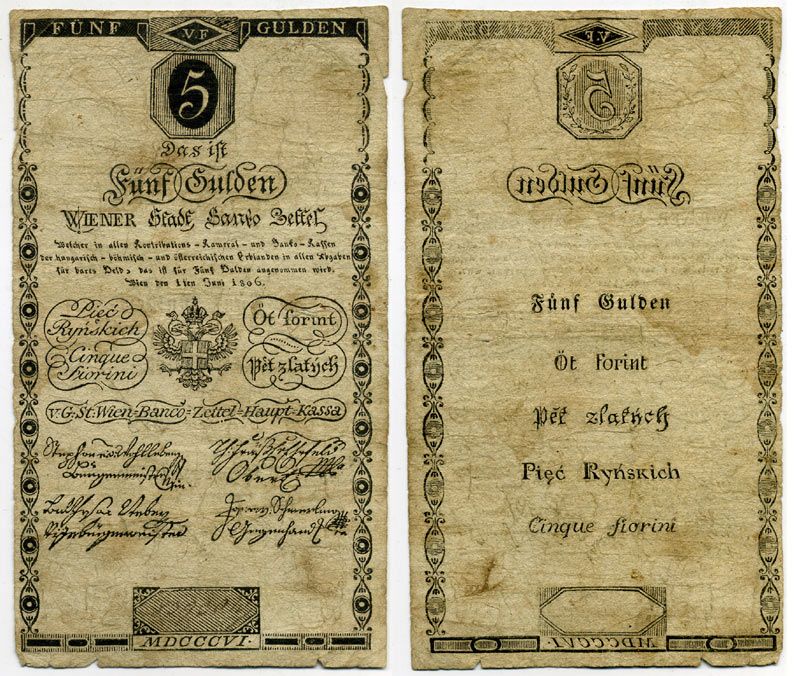 FÜNF V.F GULDEN
5
Das ist
Fünf Gulden
WIENER Stadt Banko Zettel
Welcher in allen Kontributions-Kameral- und Banko-Kassen
der hungarisch-böhmisch- und österreichischen Erblanden in allen Abgaben
für bares Geld, das ist für Fünf Gulden angenommen wird.
Wien den 1ten Juni 1806.
Pięć
Ryńskich
Cinque
fiorini
Öt forint
Pět zlatých
v. G. St. Wien-Banco-Zettel-Haupt-Kassa
MDCCCVI.
V.F
5
Fünf Gulden
Fünf Gulden
Öt forint
Pět zlatých
Pięć Ryńskich
Cinque fiorini
MDCCCVI.